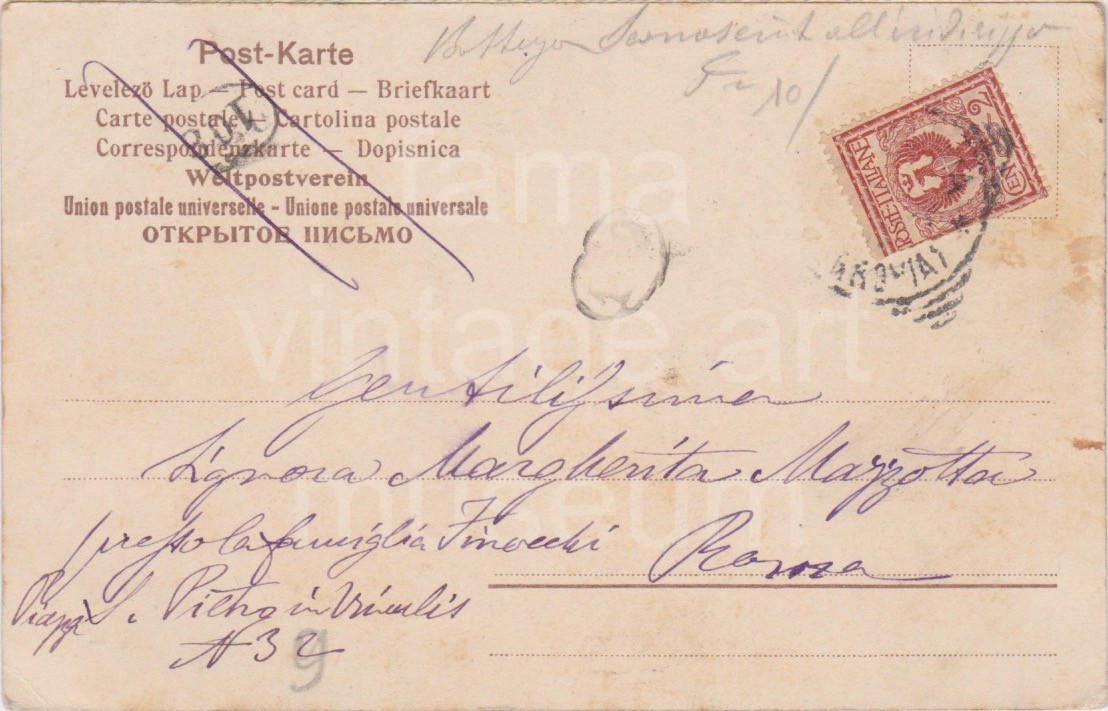 Post-Karte
Levelezö Lap — Post card — Briefkaart
Carte postale — Cartolina postale
Correspondenzkarte — Dopisnica
Weltpostverein
Union postale universelle - Unione postale universale
ОТКРЫТОЕ ПИСЬМО
all'indirizzo
10/
POSTE-ITALIANE
CEN. 2
tama
vintage art
museum
Gentilissima
Signora Margherita Mazzotta
presso la famiglia Finocchi
Roma
Piazza S. Pietro in Vinculis
N 32
9